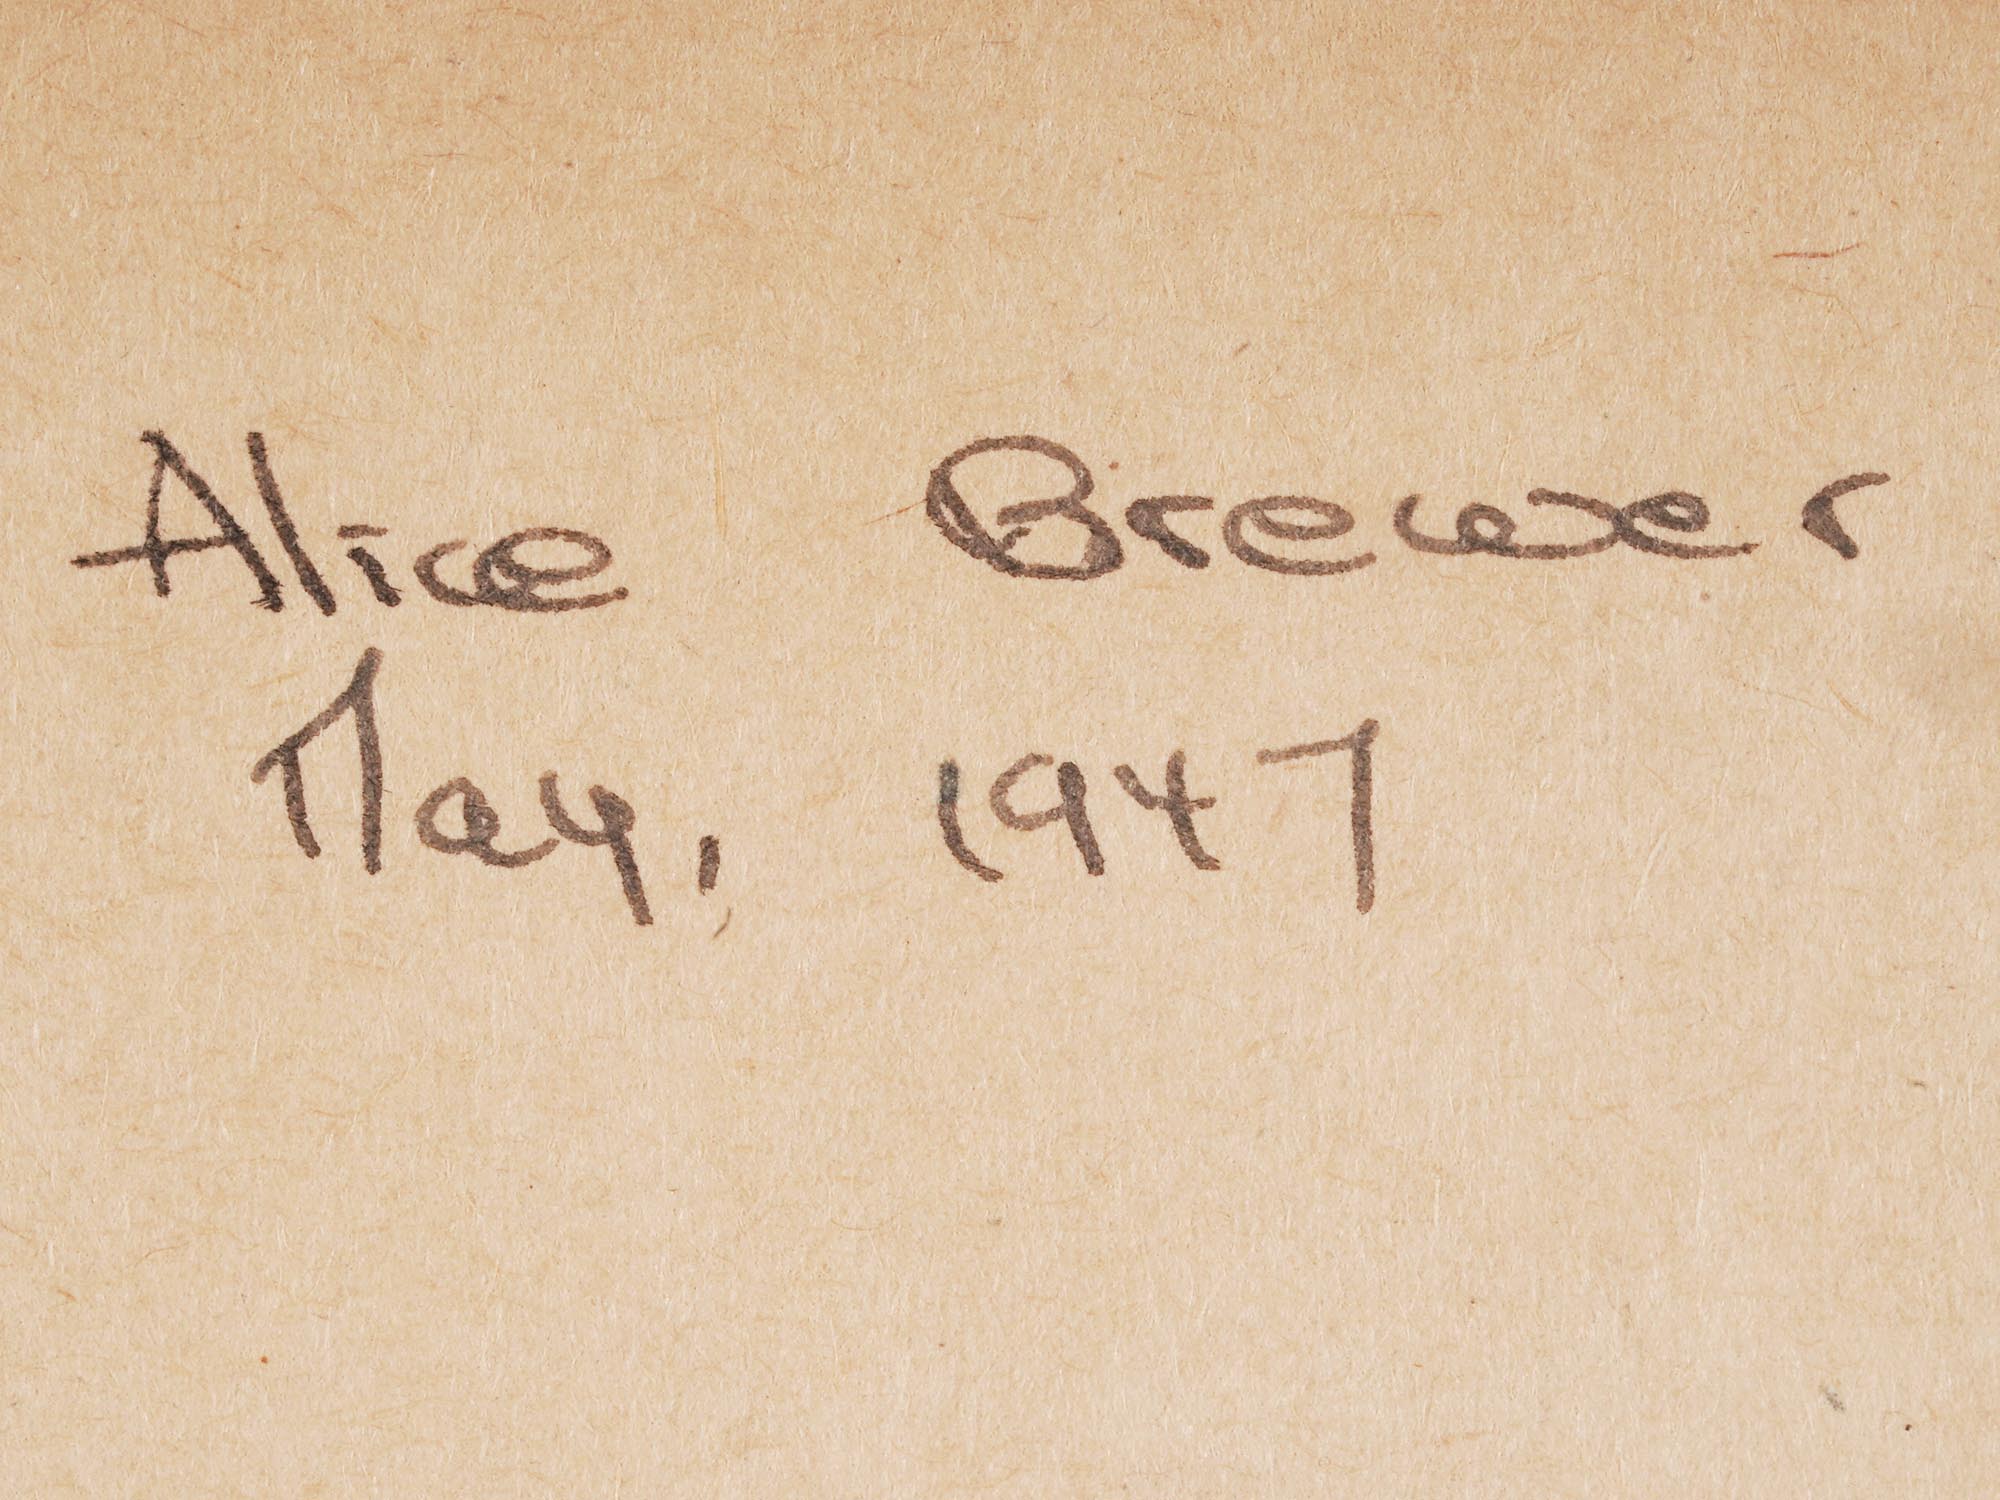 Alice Brewer
May, 1947